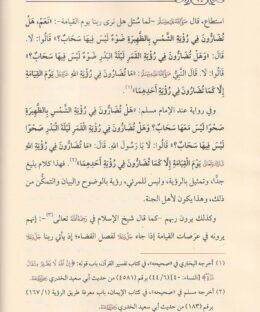 استطاع، قال ﷺ -لما سُئل هل نرى ربنا يوم القيامة-: «نَعَمْ، هَلْ
تُضَارُّونَ فِي رُؤْيَةِ الشَّمْسِ بِالظَّهِيرَةِ ضَوْءٌ لَيْسَ فِيهَا سَحَابٌ؟» قَالُوا: لَا.
قال: «وَهَلْ تُضَارُّونَ فِي رُؤْيَةِ القَمَرِ لَيْلَةَ البَدْرِ ضَوْءٌ لَيْسَ فِيهَا سَحَابٌ؟»
قَالُوا: لَا. قَالَ النَّبِيُّ ﷺ: «مَا تُضَارُّونَ فِي رُؤْيَةِ اللهِ يَوْمَ القِيَامَةِ
إِلَّا كَمَا تُضَارُّونَ فِي رُؤْيَةِ أَحَدِهِمَا»(١).
وفي رواية عند الإمام مسلم: «هَلْ تُضَارُّونَ فِي رُؤْيَةِ الشَّمْسِ بِالظَّهِيرَةِ
صَحْوًا لَيْسَ مَعَهَا سَحَابٌ؟ وَهَلْ تُضَارُّونَ فِي رُؤْيَةِ القَمَرِ لَيْلَةَ البَدْرِ صَحْوًا
لَيْسَ فِيهَا سَحَابٌ؟» قَالُوا: لَا يَا رَسُولَ اللهِ. قَالَ: «مَا تُضَارُّونَ فِي رُؤْيَةِ اللهِ
يَوْمَ القِيَامَةِ إِلَّا كَمَا تُضَارُّونَ فِي رُؤْيَةِ أَحَدِهِمَا»(٢). فهذا كلام بليغ
جدًّا، وتمثيل بالرؤية، وليس للمرئي، رؤية بالوضوح والبيان والتمكُّن من
ذلك، وهذا يكون لأهل الجنة.
وكذلك يرون ربهم -كما قال شيخ الإسلام في تعالى(٣)-: إنهم
يرونه في عرصات القيامة إذا جاء لفصل القضاء؛ إذ يأتي ربنا
(١) أخرجه البخاري في «صحيحه»، في كتاب تفسير القرآن، باب قوله: ﴿إِنَّ اللَّهَ لَا يَظْلِمُ مِثْقَالَ
[النساء: ٤٠] (٤٤/٦) برقم (٤٥٨١) من حديث أبي سعيد الخدري
(٢) أخرجه مسلم في «صحيحه»، كتاب الإيمان، باب معرفة طريق الرؤية (١٦٧/١)
برقم (١٨٣) من حديث أبي سعيد الخدري